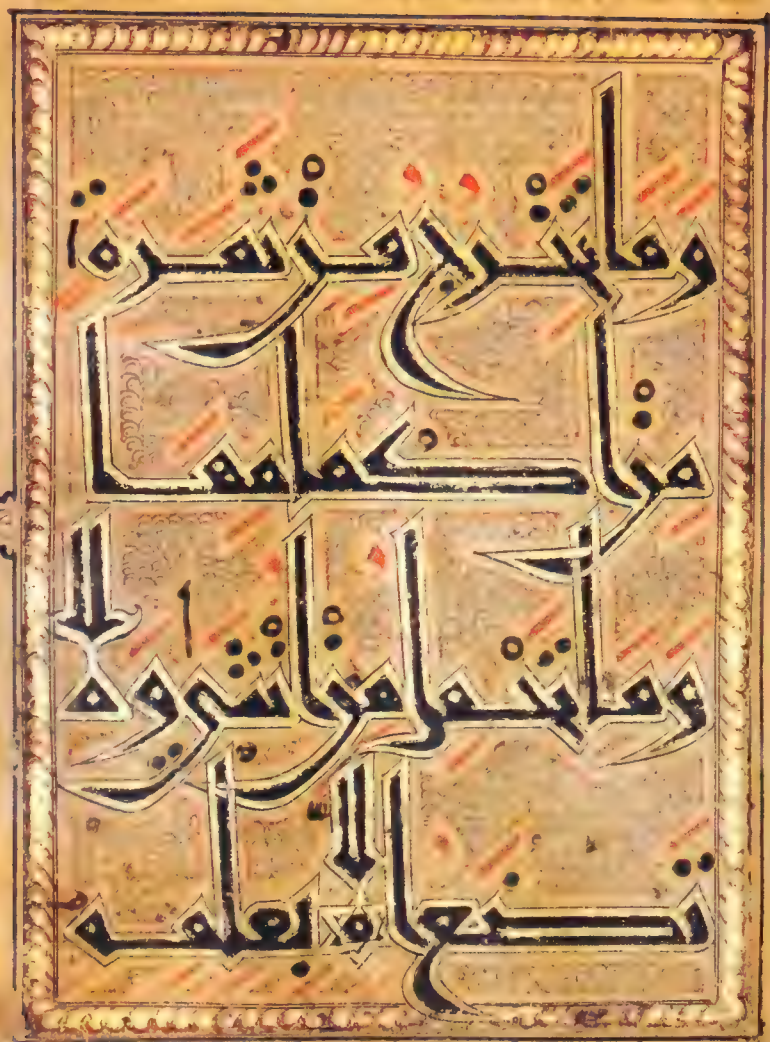 وما تخرج من ثمرة
من اكمامها
وما تحمل من انثى ولا
تضع الا بعلمه